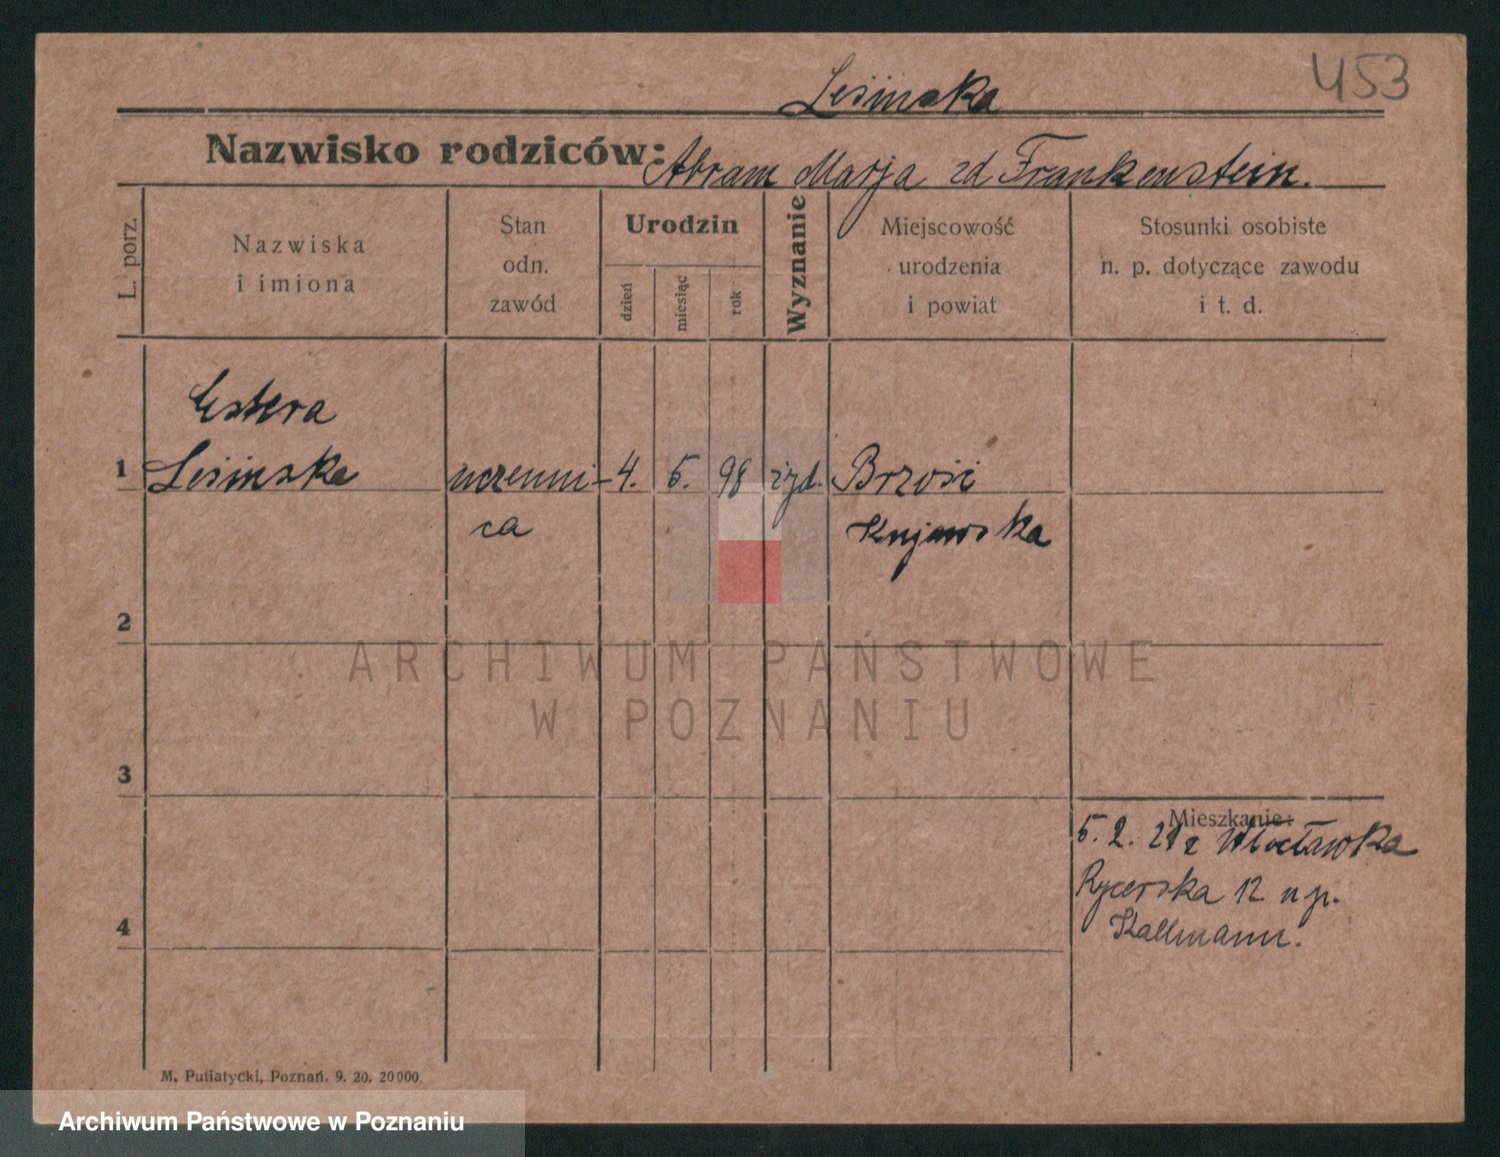 453
Lesińska
Nazwisko rodziców: Abram Marja zd Frankenstein.
L. porz.
Nazwiska
i imiona
Stan
odn.
zawód
Urodzin
dzień
miesiąc
rok
Wyznanie
Miejscowość
urodzenia
i powiat
Stosunki osobiste
n. p. dotyczące zawodu
i t. d.
Estera
1 Lesińska uczenni- 4. 5. 98 żyd. Brzość
ca Kujawska
2
ARCHIWUM PAŃSTWOWE
W POZNANIU
3
Mieszkanie:
5. 2. 21 z Włocławka
Rycerska 12 u p.
4 Kallmann.
M. Putiatycki, Poznań. 9. 20. 20000.
Archiwum Państwowe w Poznaniu